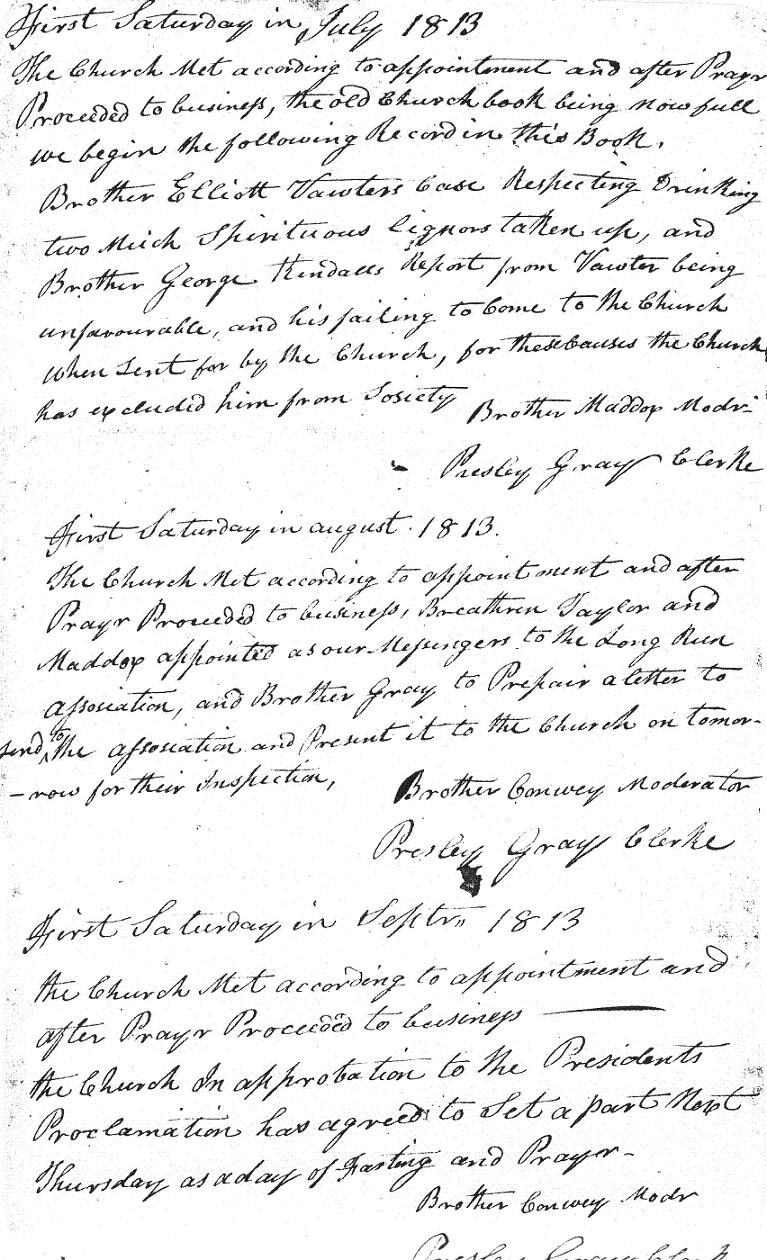 First Saturday in July 1813
The Church Met according to appointment and after Prayr
Proceeded to business, the old Church book being now full
we begin the following Record in this Book.
Brother Elliott Vawters Case Respecting Drinking
two Much Spirituous Liqnors taken up, and
Brother George Kendalls Report from Vawter being
unfavourable, and his failing to Come to the Church
when Sent for by the Church, for these Causes the Church
has excluded him from Sosiety
Brother Maddox Modr
Presley Gray Clerke
First Saturday in august 1813.
The Church Met according to appointment and after
Prayr Proceeded to business, Breathren Taylor and
Maddox appointed as our Messengers to the Long Run
assosiation, and Brother Gray to Prepair a letter to
send to the assosiation and Present it to the Church on tomor-
-row for their Inspection,
Brother Conwey Moderator
Presley Gray Clerke
First Saturday in Septr,, 1813
the Church Met according to appointment and
after Prayr Proceeded to business
the Church In approbation to the Presidents
Proclamation has agreed to Set a part Next
Thursday as a day of Fasting and Prayr-
Brother Conwey Modr
Presley Gray Clerk